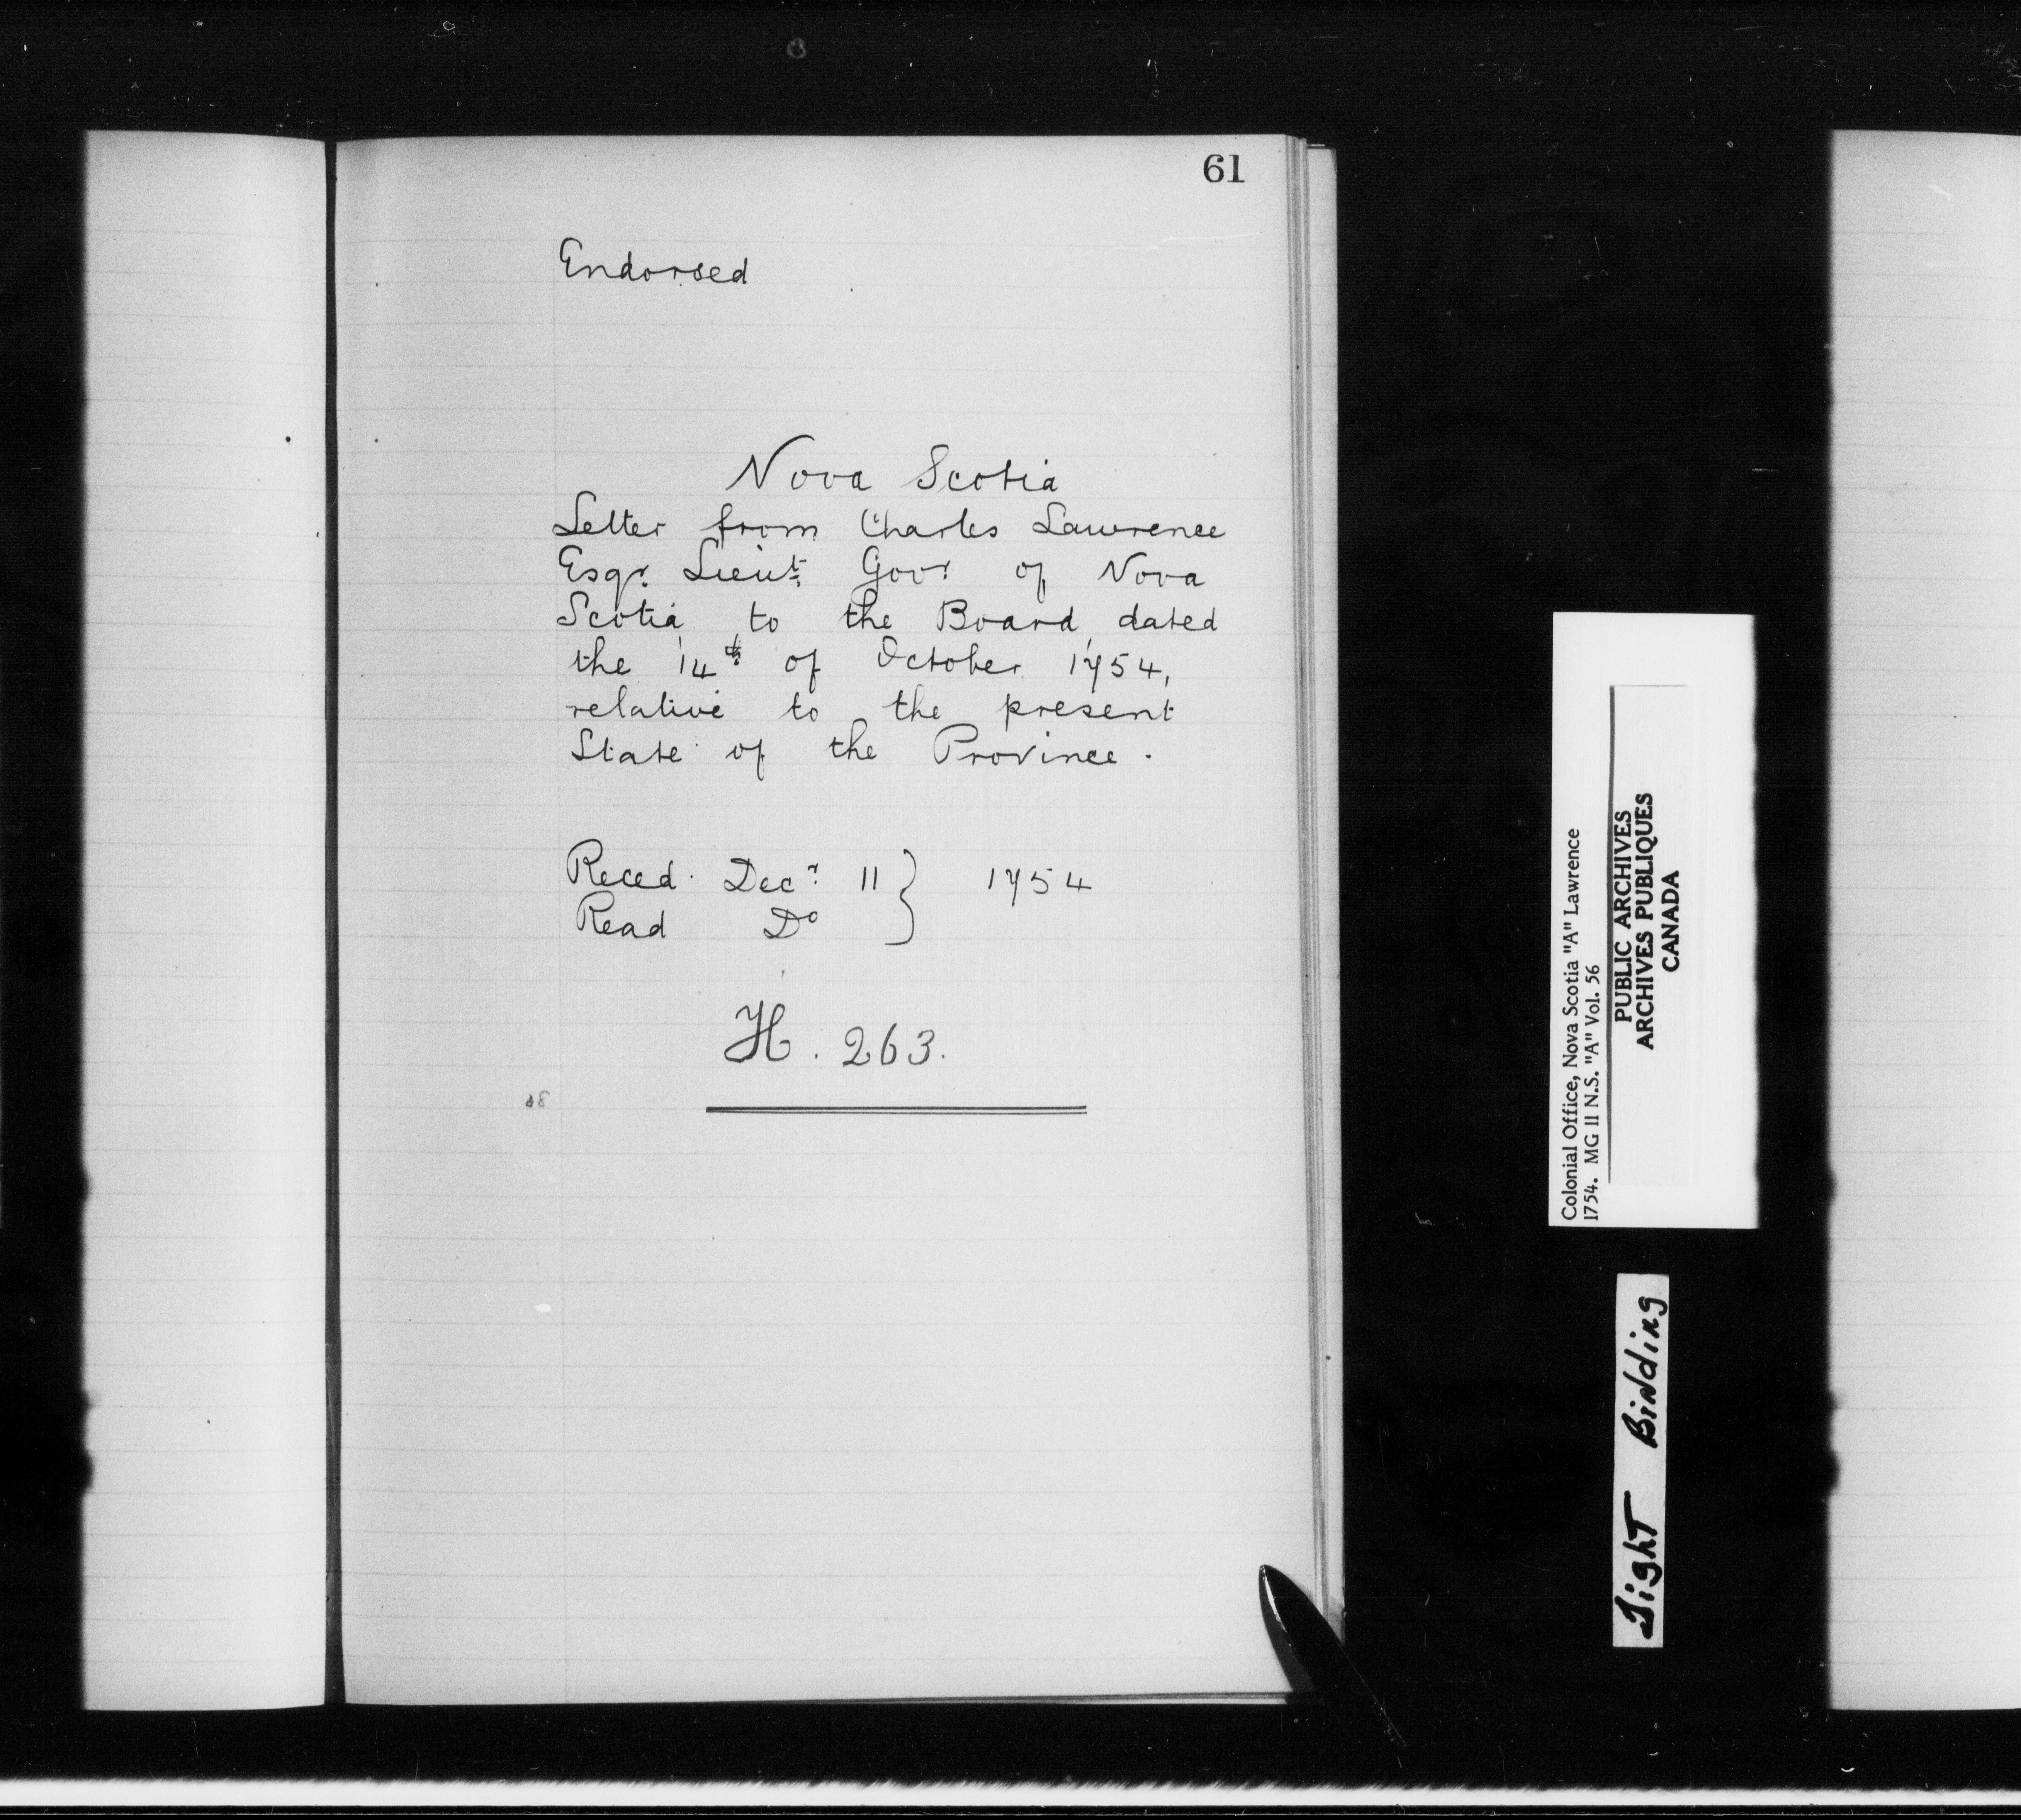 61
Endorsed
Nova Scotia
Letter from Charles Lawrence
Esqr. Lieut. Govr. of Nova
Scotia to the Board dated
the 14th of October 1754,
relative to the present
State of the Province.
Reced. Decr. 11 } 1754
Read Do
H. 263.
Colonial Office, Nova Scotia "A" Lawrence
1754. MG 11 N.S. "A" Vol. 56
PUBLIC ARCHIVES
ARCHIVES PUBLIQUES
CANADA
Tight Binding